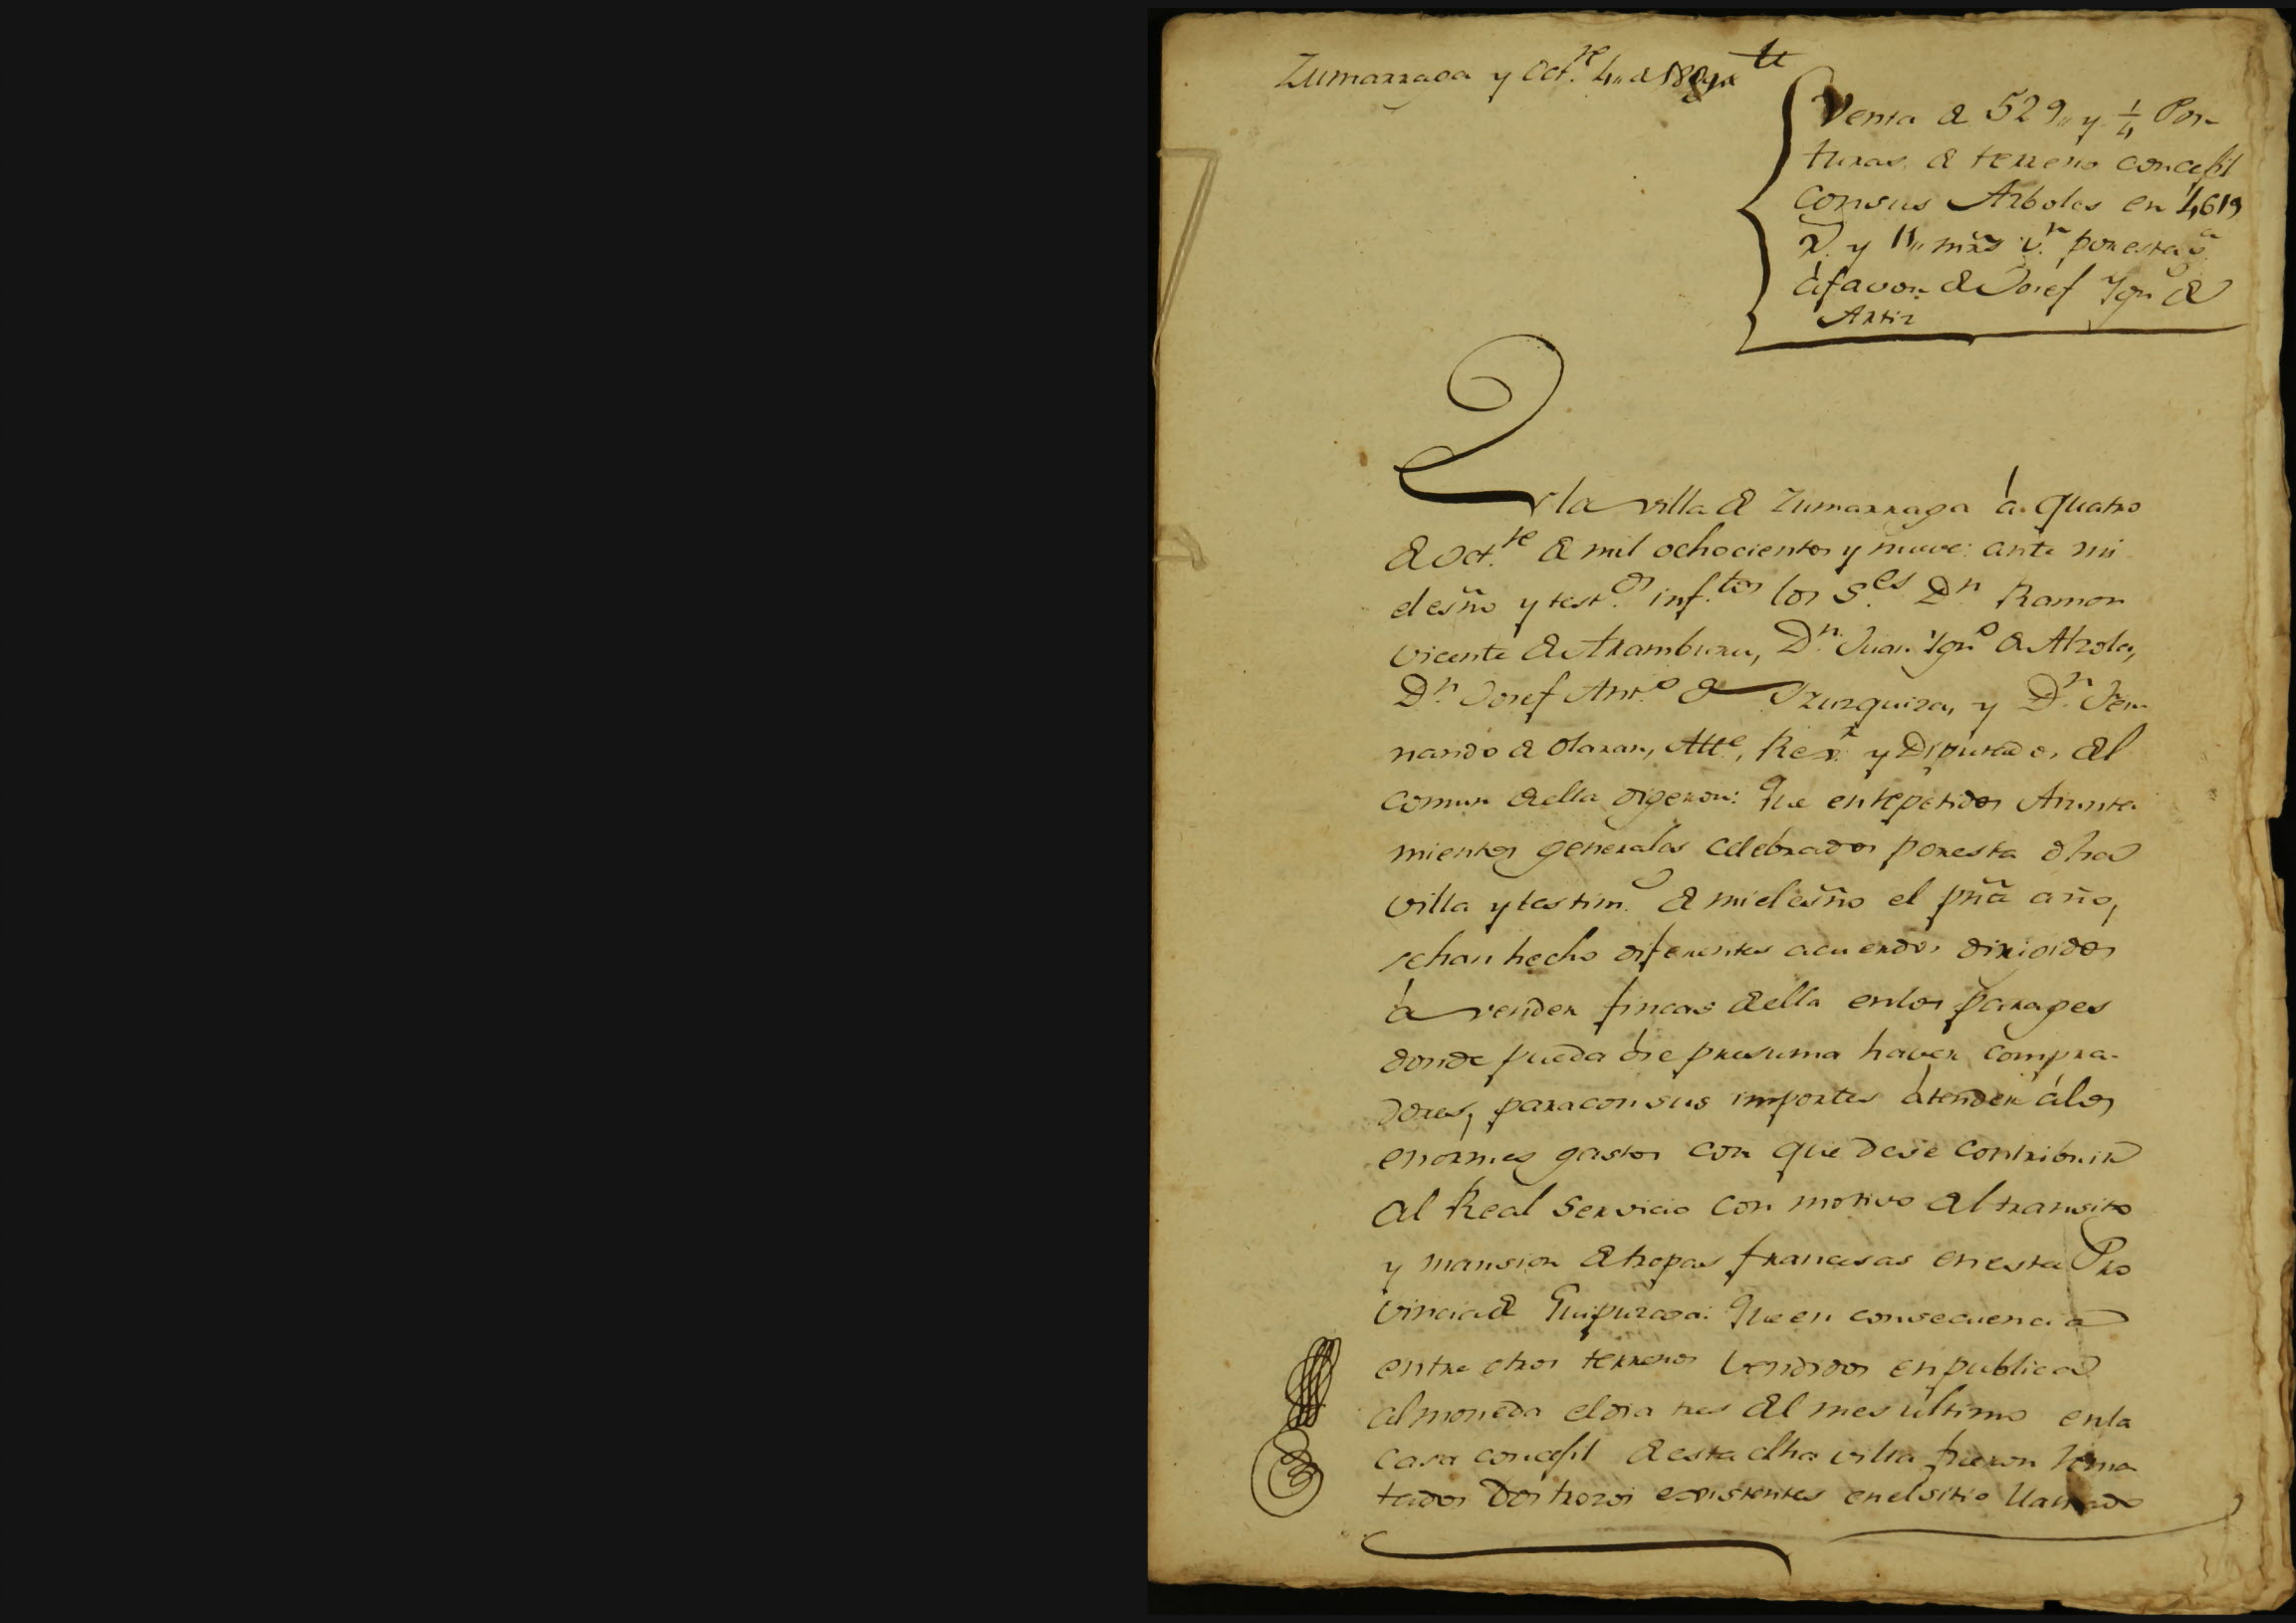 Zumarraga y Oct.re 4,, de 1809
Venta de 529,, y 1/4 Pos-
turas de terreno concegil
consus Arboles en 4619
r.s y 11,, mrs v.n por esta v.a
áfavor de Josef Ygn.o de
Artiz
En la villa de Zumarraga á quatro
de Oct.re de mil ochocientos y nueve: ante mi
el esño y test.os inf.tos los S.es D.n Ramon
Vicente de Aramburu, D.n Juan Ygn.o de Alzola,
D.n Josef Ant.o de Yzuzquiza, y D.n Fer-
nando de Olaran, Alc.e, Rex.r y Diputados del
comun della digeron: Que en repetidos Aiunta-
mientos generales celebrados por esta dha
villa y testim.o de mi el esño el pñte año,
sehan hecho diferentes acuerdos dirigidos
á vender fincas della enlos parages
donde pueda óse presuma haver compra-
dores, paraconsus importes átender álos
enormes gastos con que deve contribuir
al Real Servicio con motivo del transito
y mansion de tropas francesas en esta Pro
vincia de Guipuzcoa: Que en consecuencia
entre otros terrenos vendidos en publica
almoneda eldia tres del mes ultimo enla
casa concegil de esta dha villa fueron rema
tados dos trozos existentes enelsitio llamado